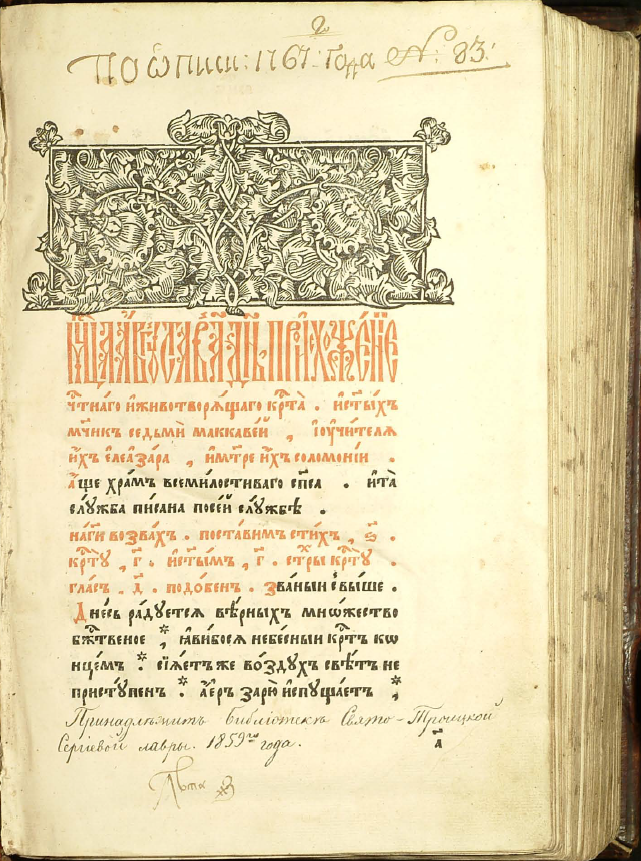 По ѡписи: 1767: Года №: 83:
мц҃а аѵгꙋста въ а҃ дн҃ь, происхожде́нїе
чⷭ҇тна́го и҆животворѧ́щаго крⷭ҇та̀ . и҆ст҃ы́хъ
мч҃нкъ седьмѝ маккаве́й , і҆ᲂу҆чи́телѧ
и҆́хъ є҆леаза́ра , и҆мт҃ре и҆́хъ соломоні́и .
а҆́ще хра́мъ всеми́лостиваго сп҃са . и҆та̀
слꙋ́жба пи́сана посе́й слꙋ́жбѣ .
на гдⷭ҇и возва́хъ . поста́вимъ сти́хъ , ѕ҃ .
крⷭ҇тꙋ̀ , г҃ . и҆ст҃ы́мъ , г҃ . стⷯры крⷭ҇тꙋ̀ .
гла́съ . д҃ . подо́бенъ . зва́ныи свы́ше .
Дне́сь ра́дꙋетсѧ вѣ́рныхъ мно́жество
бжⷭ҇твеное , ꙗ҆ви́босѧ небе́сныи крⷭ҇тъ ко
нце́мъ . сїѧ́етъ же во́здꙋхъ свѣ́тъ не
пристꙋ́пенъ . а҆е́ръ зарю̀ и҆спꙋща́етъ ,
Принадлѣжитъ библіотекѣ Свято-Троицкой
Сергіевой лавры. 1859го года.
а҃